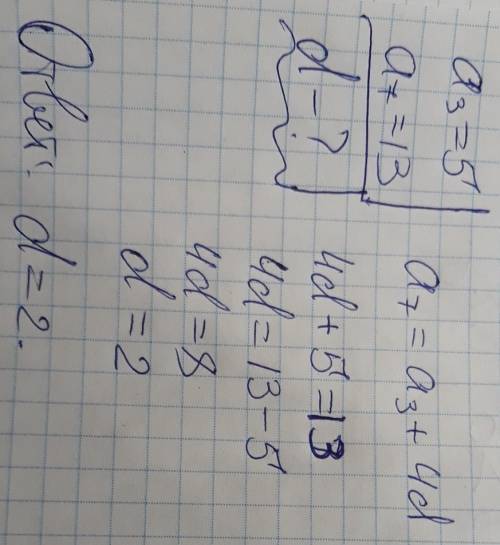 a₃ = 5
a₇ = 13
d - ?
a₇ = a₃ + 4d
4d + 5 = 13
4d = 13 - 5
4d = 8
d = 2
Ответ: d = 2.